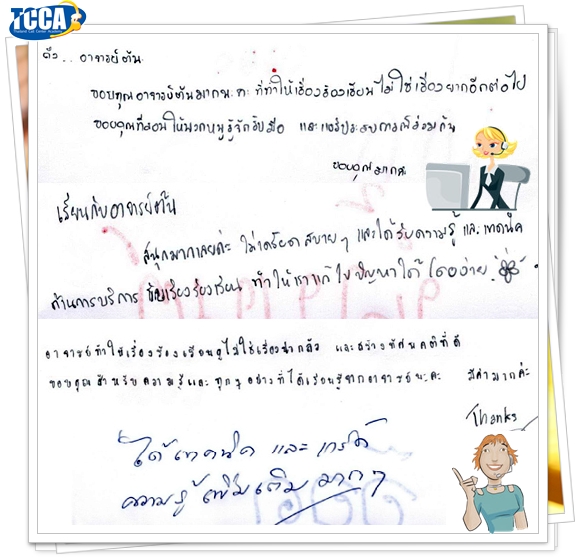 TCCA
Thailand Call Center Academy
ถึง.. อาจารย์ตั้น
ขอบคุณอาจารย์ตั้นมากนะคะ ที่ทำให้เรื่องร้องเรียนไม่ใช่เรื่องยากอีกต่อไป
ขอบคุณที่สอนให้พวกหนูรู้จักรับมือ และแชร์ประสบการณ์ร่วมกัน
ขอบคุณมากค่ะ
เรียนกับอาจารย์ตั้น
สนุกมากเลยค่ะ ไม่เครียด สบายๆ และได้รับความรู้ และเทคนิค
ด้านการบริการ ข้อเรียงร้องเรียน ทำให้เราแก้ไขปัญหาได้โดยง่าย
อาจารย์ทำให้เรื่องร้องเรียนดูไม่ใช่เรื่องน่ากลัว และสร้างทัศนคติที่ดี
ขอบคุณสำหรับความรู้และทุกๆอย่างที่ได้เรียนรู้จากอาจารย์นะคะ มีค่ามากค่ะ
Thanks
ได้เทคนิค และ เกร็ด
ความรู้เพิ่มเติมมากๆ